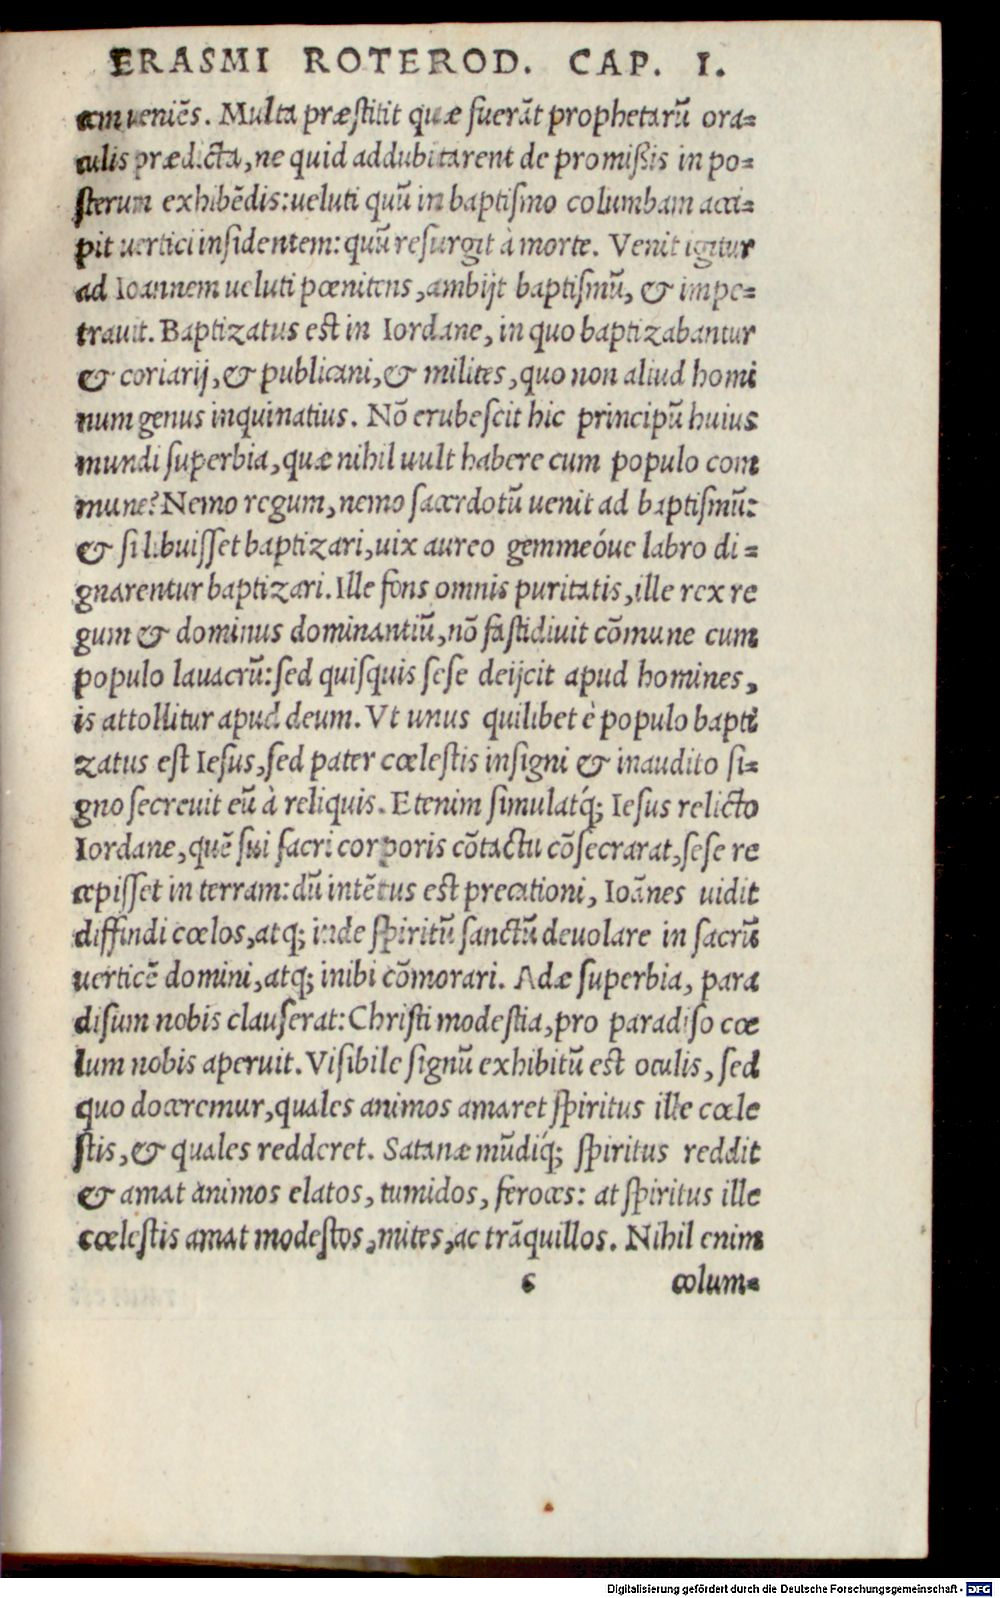 ERASMI ROTEROD. CAP. I.
am veniēs. Multa præstitit quæ fuerāt prophetarū ora=
culis prædicta, ne quid addubitarent de promißis in po=
sterum exhibēdis: ueluti quū in baptismo columbam acci=
pit uertici insidentem: quū resurgit à morte. Venit igitur
ad Ioannem ueluti pœnitens, ambijt baptismū, & impe=
trauit. Baptizatus est in Iordane, in quo baptizabantur
& coriarij, & publicani, & milites, quo non aliud homi
num genus inquinatius. Nō erubescit hic principū huius
mundi superbia, quæ nihil uult habere cum populo com
mune? Nemo regum, nemo sacerdotū uenit ad baptismū:
& si libuisset baptizari, uix aureo gemmeóue labro di=
gnarentur baptizari. Ille fons omnis puritatis, ille rex re
gum & dominus dominantiū, nō fastidiuit cōmune cum
populo lauacrū: sed quisquis sese deijcit apud homines,
is attollitur apud deum. Vt unus quilibet è populo bapti
zatus est Iesus, sed pater cœlestis insigni & inaudito si=
gno secreuit eū à reliquis. Etenim simulatq́; Iesus relicto
Iordane, quē sui sacri corporis cōtactu cōsecrarat, sese re
cepisset in terram: dū intētus est precationi, Ioānes uidit
diffindi cœlos, atq; inde spiritū sanctū deuolare in sacrū
uerticē domini, atq; inibi cōmorari. Adæ superbia, para
disum nobis clauserat: Christi modestia, pro paradiso cœ
lum nobis aperuit. Visibile signū exhibitū est oculis, sed
quo doceremur, quales animos amaret spiritus ille cœle
stis, & quales redderet. Satanæ mūdiq́; spiritus reddit
& amat animos elatos, tumidos, feroces: at spiritus ille
cœlestis amat modestos, mites, ac trāquillos. Nihil enim
c colum=
Digitalisierung gefördert durch die Deutsche Forschungsgemeinschaft - DFG